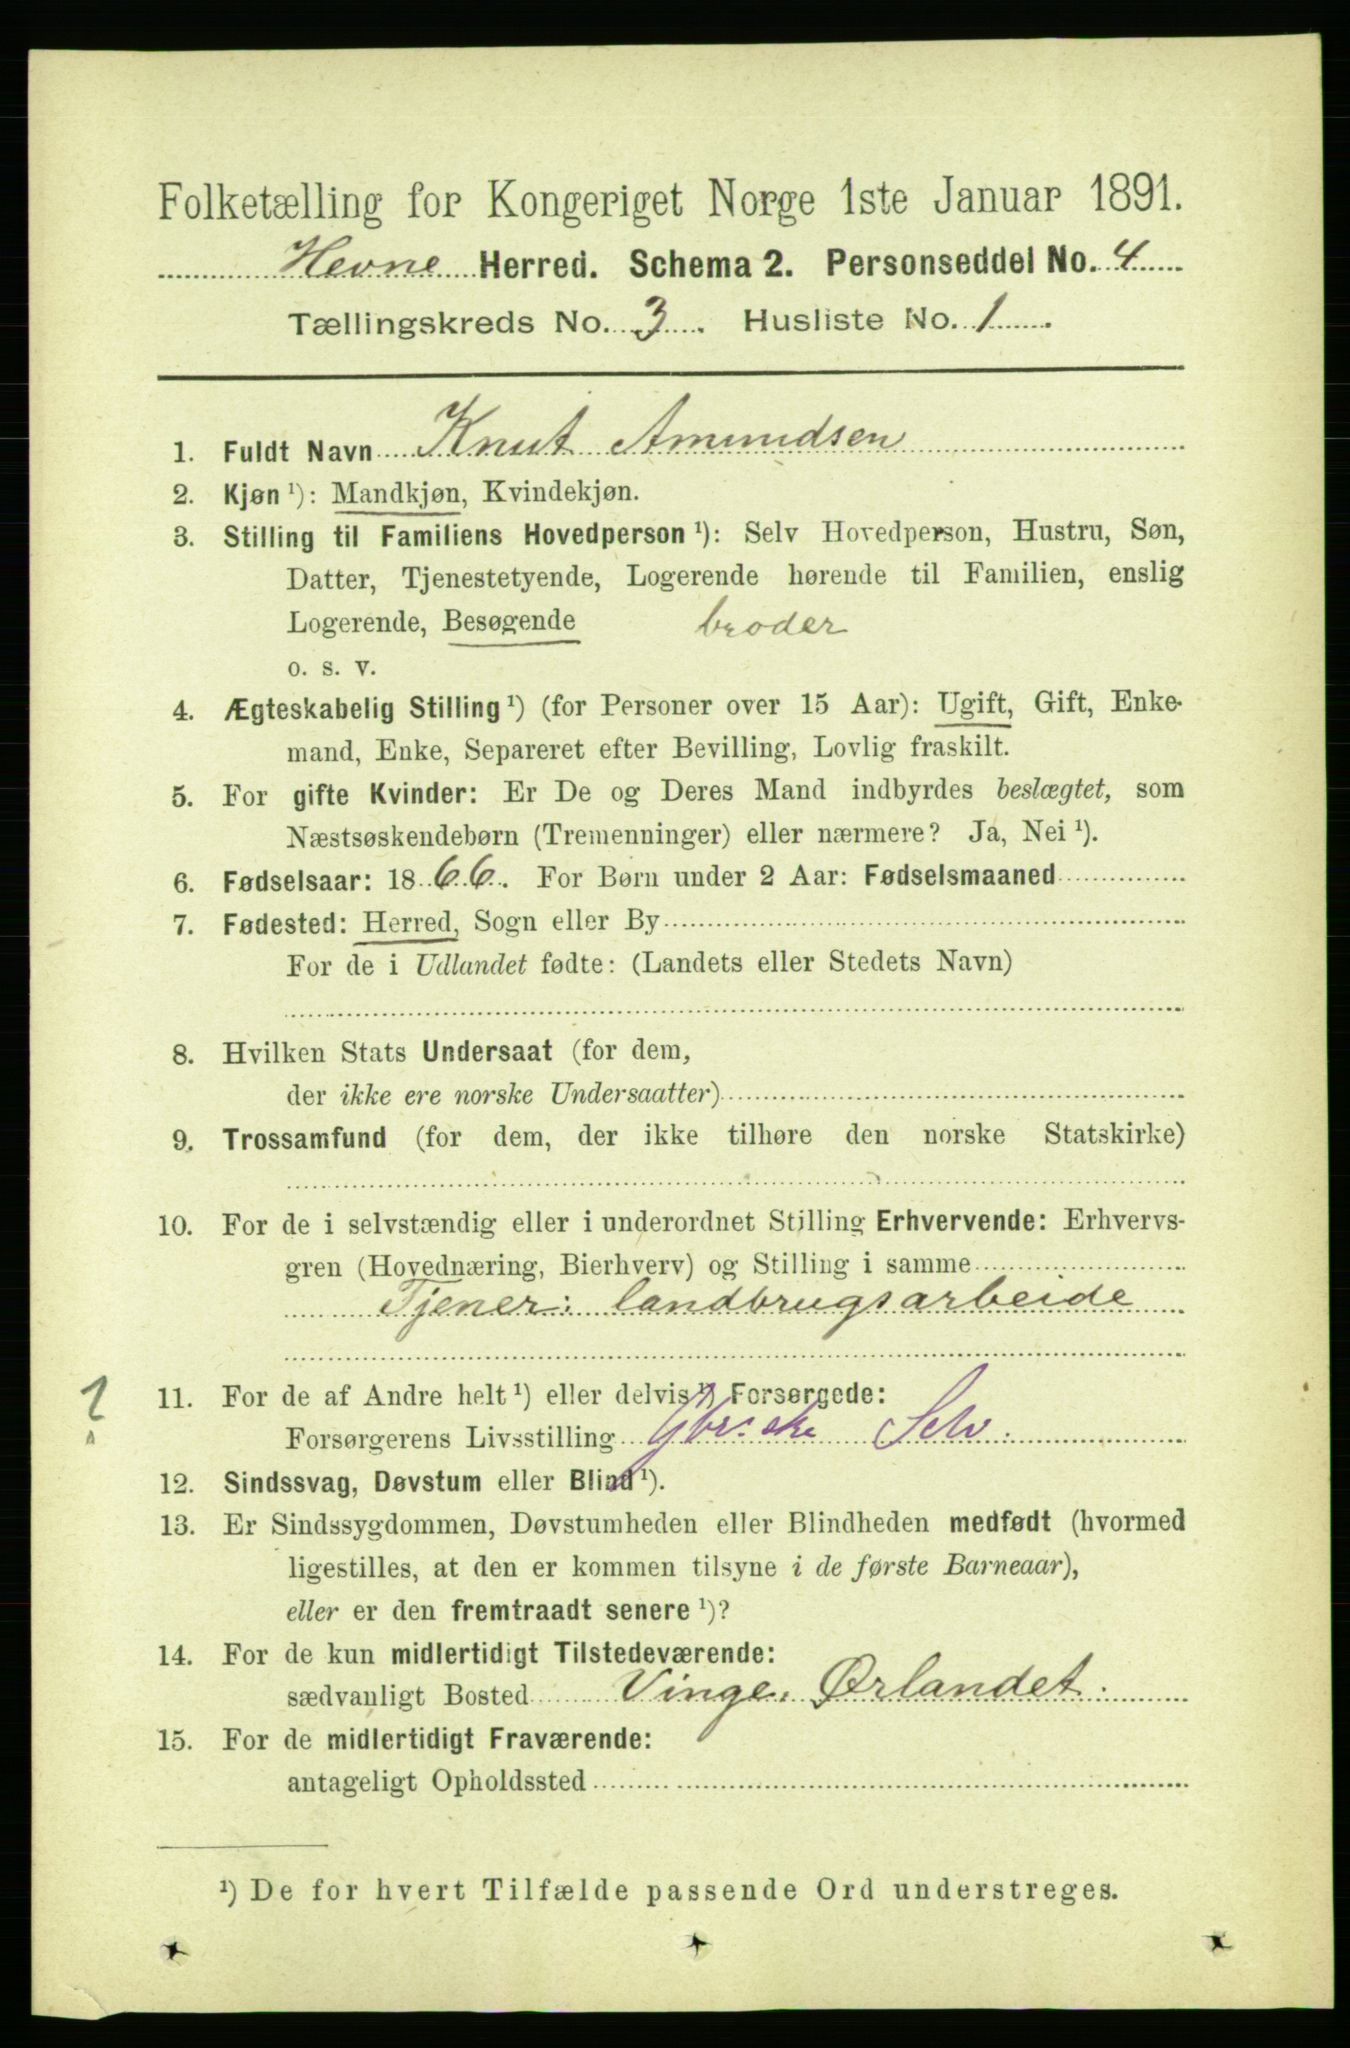 Folketælling for Kongeriget Norge 1ste Januar 1891.
Hevne Herred. Schema 2. Personseddel No. 4
Tællingskreds No. 3. Husliste No. 1.
1. Fuldt Navn Knut Amundsen
2. Kjøn ¹): Mandkjøn, Kvindekjøn.
3. Stilling til Familiens Hovedperson ¹): Selv Hovedperson, Hustru, Søn,
Datter, Tjenestetyende, Logerende hørende til Familien, enslig
Logerende, Besøgende broder
o. s. v.
4. Ægteskabelig Stilling ¹) (for Personer over 15 Aar): Ugift, Gift, Enke-
mand, Enke, Separeret efter Bevilling, Lovlig fraskilt.
5. For gifte Kvinder: Er De og Deres Mand indbyrdes beslægtet, som
Næstsøskendebørn (Tremenninger) eller nærmere? Ja, Nei ¹).
6. Fødselsaar: 1866. For Børn under 2 Aar: Fødselsmaaned
7. Fødested: Herred, Sogn eller By
For de i Udlandet fødte: (Landets eller Stedets Navn)
8. Hvilken Stats Undersaat (for dem,
der ikke ere norske Undersaatter)
9. Trossamfund (for dem, der ikke tilhøre den norske Statskirke)
10. For de i selvstændig eller i underordnet Stilling Erhvervende: Erhvervs-
gren (Hovednæring, Bierhverv) og Stilling i samme
Tjener: landbrugsarbeide
? 11. For de af Andre helt ¹) eller delvis ¹) Forsørgede:
Forsørgerens Livsstilling Selv.
12. Sindssvag, Døvstum eller Blind ¹).
13. Er Sindssygdommen, Døvstumheden eller Blindheden medfødt (hvormed
ligestilles, at den er kommen tilsyne i de første Barneaar),
eller er den fremtraadt senere ¹)?
14. For de kun midlertidigt Tilstedeværende:
sædvanligt Bosted Vinge, Ørlandet.
15. For de midlertidigt Fraværende:
antageligt Opholdssted
¹) De for hvert Tilfælde passende Ord understreges.